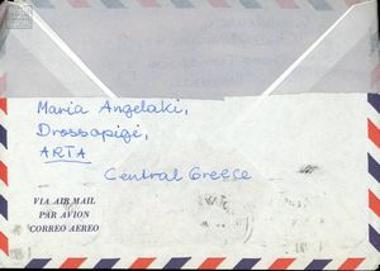 Maria Angelaki,
Drossopigi,
ARTA
Central Greece
VIA AIR MAIL
PAR AVION
CORREO AEREO